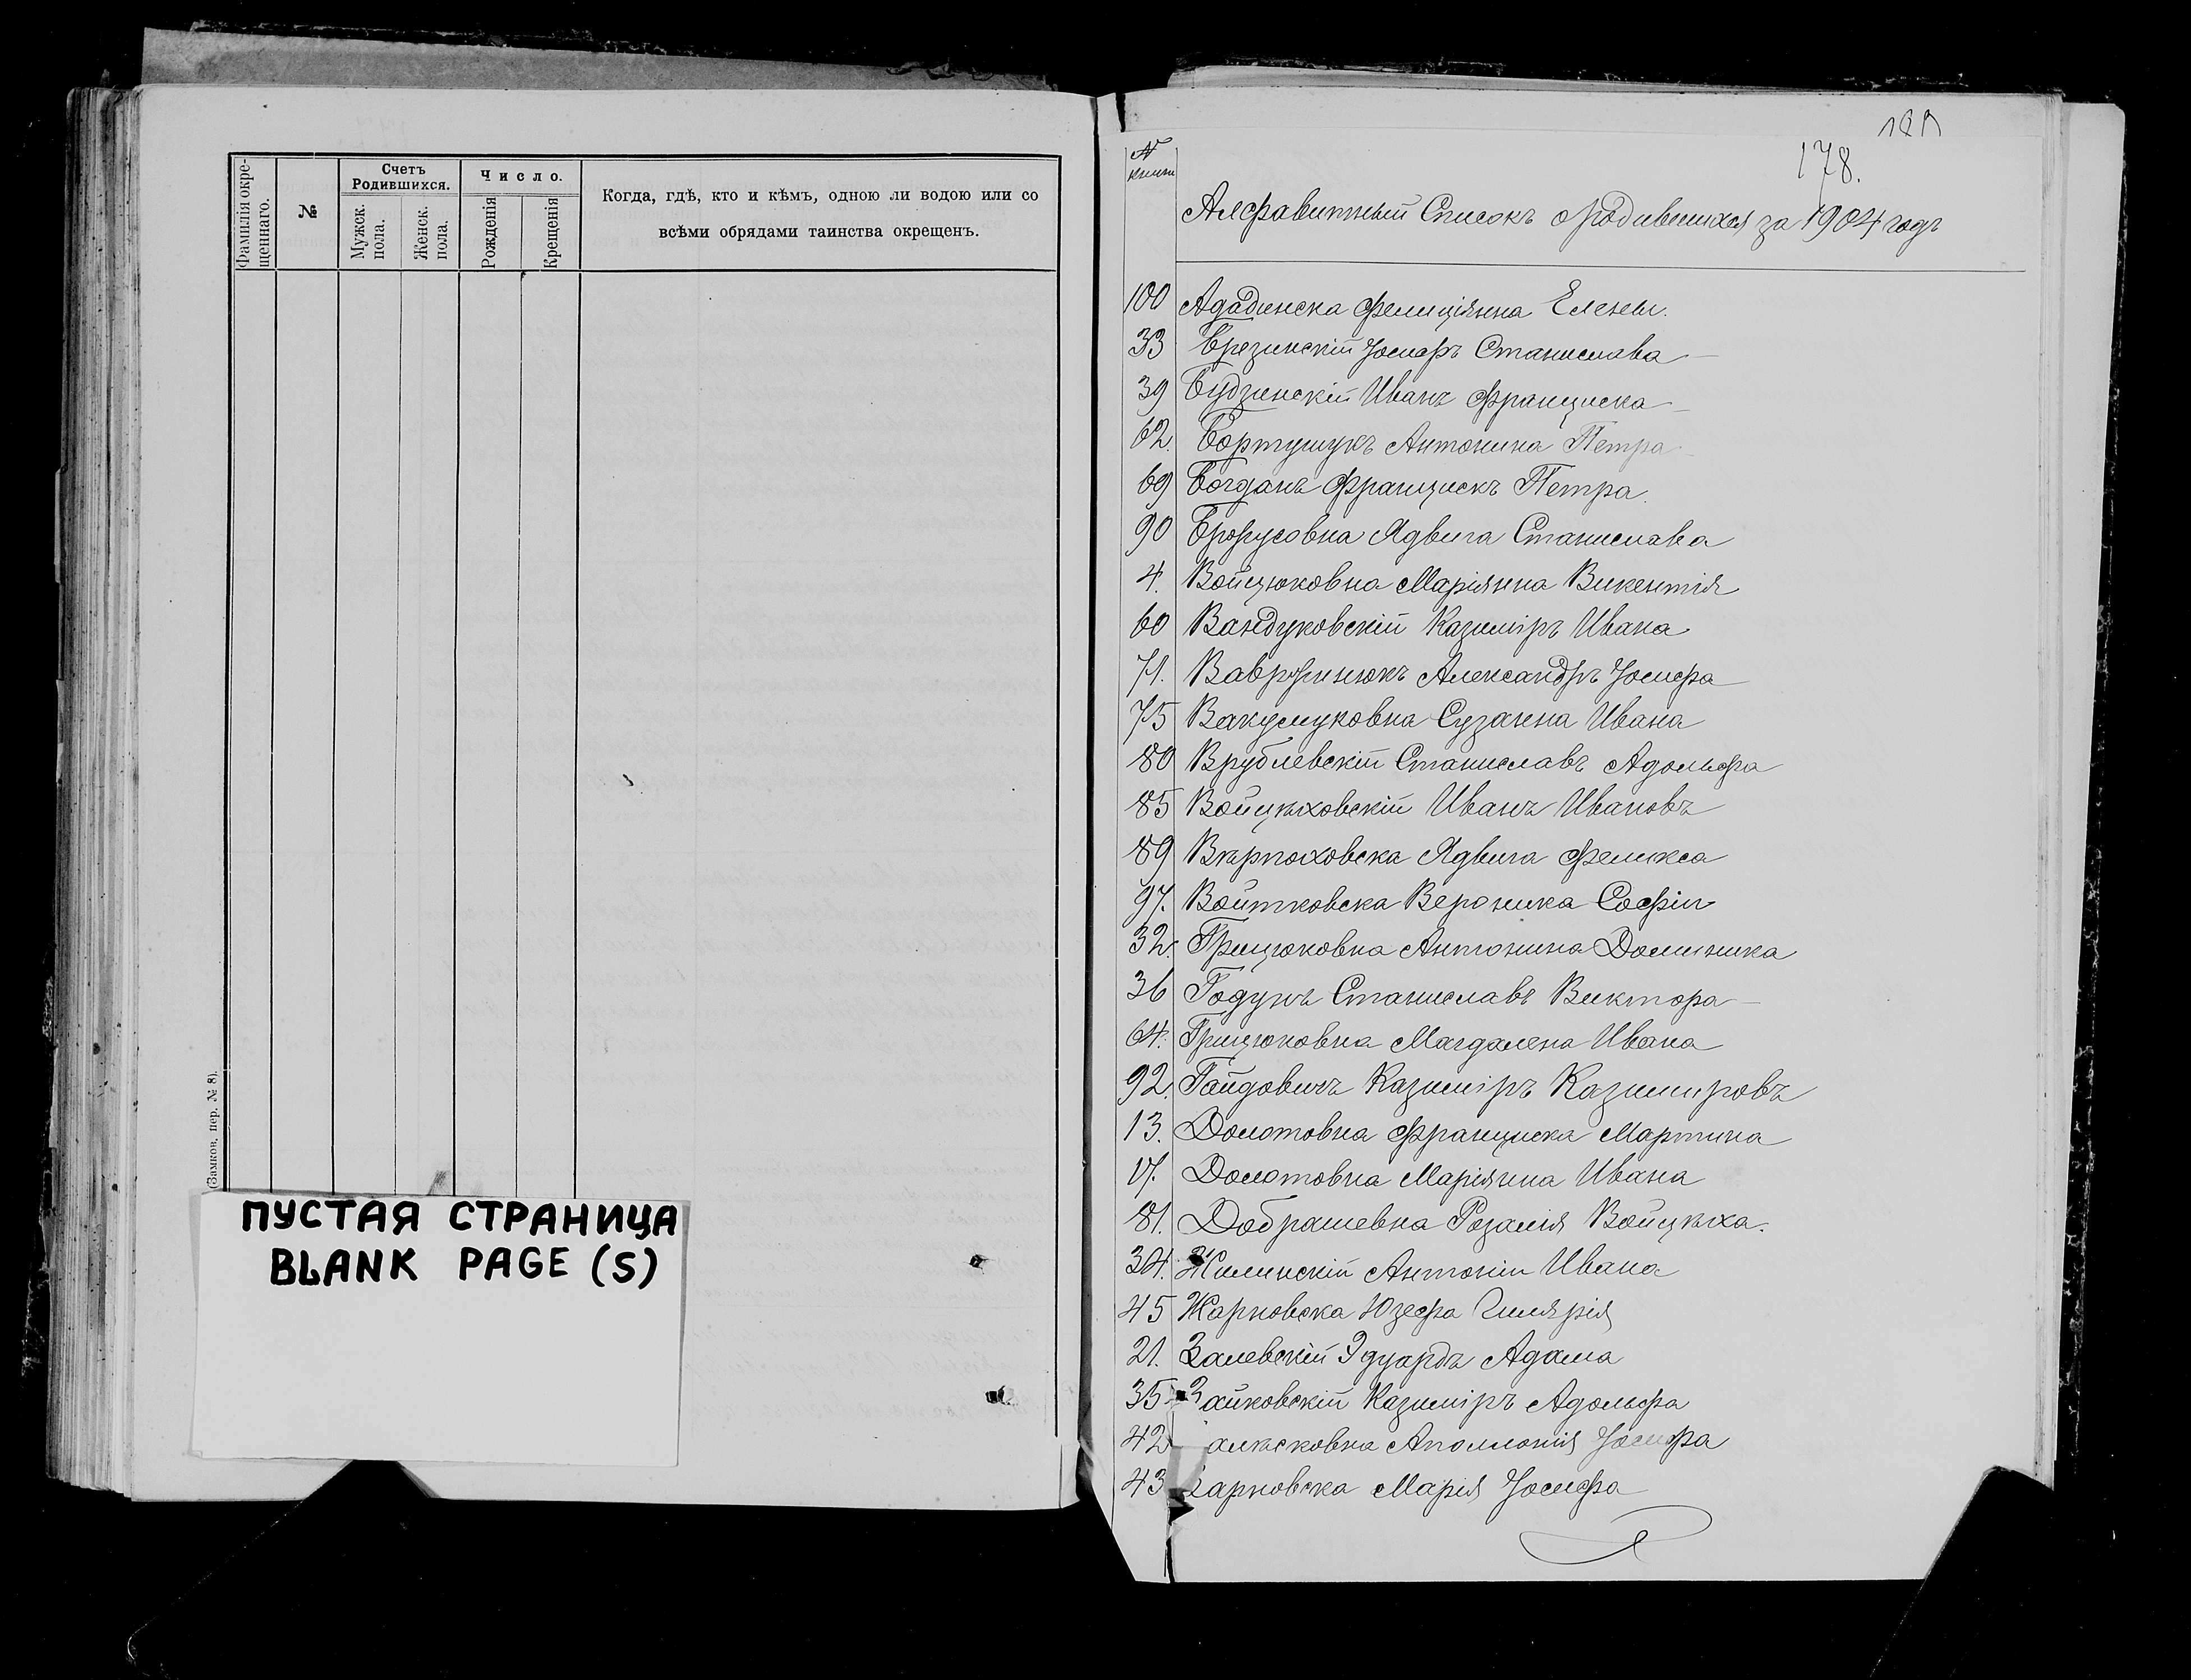 Фамилія окре-
щеннаго.
№
Счетъ
Родившихся.
Мужск.
пола.
Женск.
пола.
Число.
Рожденія
Крещенія
Когда, гдѣ, кто и кѣмъ, одною ли водою или со
всѣми обрядами таинства окрещенъ.
(Замков. пер. № 8).
ПУСТАЯ СТРАНИЦА
BLANK PAGE (S)
178.
№
Алфавитный Списокъ о родившихся за 1904 годъ
100 Ададинска Фелиціянна Елены.
33 Брезинскій Іосифъ Станислава
39 Будзинскій Иванъ Франциска
62. Бортущукъ Антонина Петра
69 Богданъ Францискъ Петра
90 Брофусовна Ядвига Станислава
4. Войцюковна Маріянна Викентія
60 Вандуковскій Казиміръ Ивана
71. Ваврфинюкъ Александръ Іосифа
75 Вакулуковна Сузанна Ивана
80 Врублевскій Станиславъ Адольфа
85 Войцѣховскій Иванъ Ивановъ
89 Вѣрпоховска Ядвига Феликса
97. Войтковска Вероника Софіи
32. Грицюковна Антонина Доминика
36 Годунъ Станиславъ Виктора
64. Грицюковна Магдалена Ивана
92. Гайдовичъ Казиміръ Казимировъ
13. Долотовна Франциска Мартина
17. Долотовна Маріянна Ивана
81. Добрашевна Розалія Войцѣха.
34. Жилинскій Антоній Ивана
45 Жарновска Юзефа Гилярія
21. Залевскій Эдуардъ Адама
35 Зайковскій Казиміръ Адольфа
42 Аполлонія Іосифа
43 Марія Іосифа